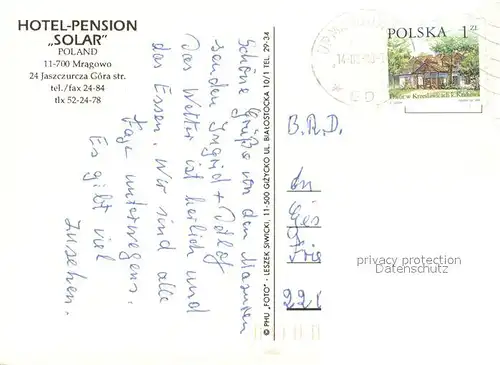 HOTEL-PENSION
„SOLAR”
POLAND
11-700 Mrągowo
24 Jaszczurcza Góra str.
tel./fax 24-84
tlx 52-24-78
Schöne Grüße von den Masuren
senden Ingrid +
Das Wetter ist herlich und
das Essen. Wir sind alle
Tage unterwegens.
Es gibt viel
Zusehen.
© PHU „FOTO” · LESZEK SIWICKI, 11-500 GIŻYCKO UL. BIAŁOSTOCKA 10/1 TEL. 29-34
POLSKA 1 ZŁ
Dwór w Krzesławicach k. Krakowa
B.R.D.
An
Ges
Frie
221
privacy protection
Datenschutz